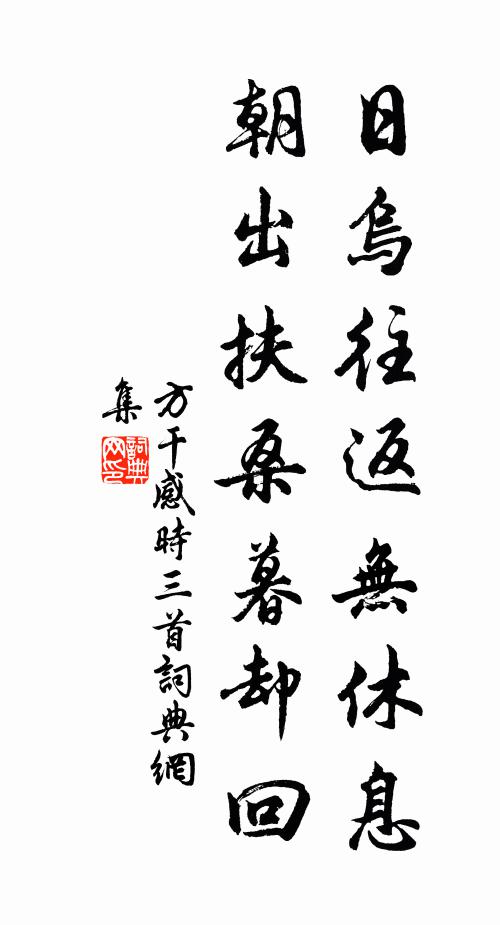 日烏往返無休息
朝出扶桑暮却回
方干感時三首詞典網
集
詞典
网印